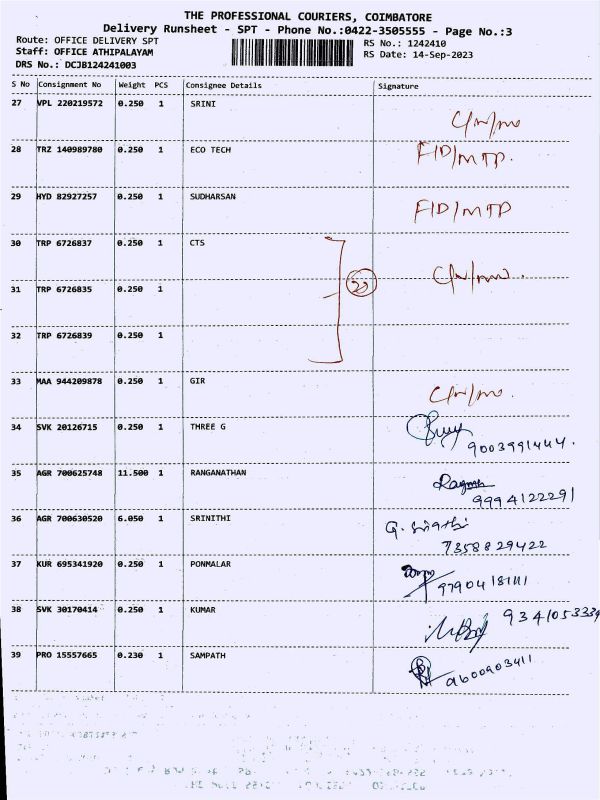 THE PROFESSIONAL COURIERS, COIMBATORE
Delivery Runsheet - SPT - Phone No.:0422-3505555 - Page No.:3
Route: OFFICE DELIVERY SPT
RS No.: 1242410
Staff: OFFICE ATHIPALAYAM
RS Date: 14-Sep-2023
DRS No.: DCJB124241003
S No Consignment No Weight PCS Consignee Details Signature
27 VPL 220219572 0.250 1 SRINI
28 TRZ 140989780 0.250 1 ECO TECH FID/MTP.
29 HYD 82927257 0.250 1 SUDHARSAN FID/MTP
30 TRP 6726837 0.250 1 CTS
31 TRP 6726835 0.250 1
32 TRP 6726839 0.250 1
33 MAA 944209878 0.250 1 GIR
34 SVK 20126715 0.250 1 THREE G 9003991444.
35 AGR 700625748 11.500 1 RANGANATHAN 9994122291
36 AGR 700630520 6.050 1 SRINITHI 7358829422
37 KUR 695341920 0.250 1 PONMALAR
38 SVK 30170414 0.250 1 KUMAR 9341053339
39 PRO 15557665 0.230 1 SAMPATH 9600903411